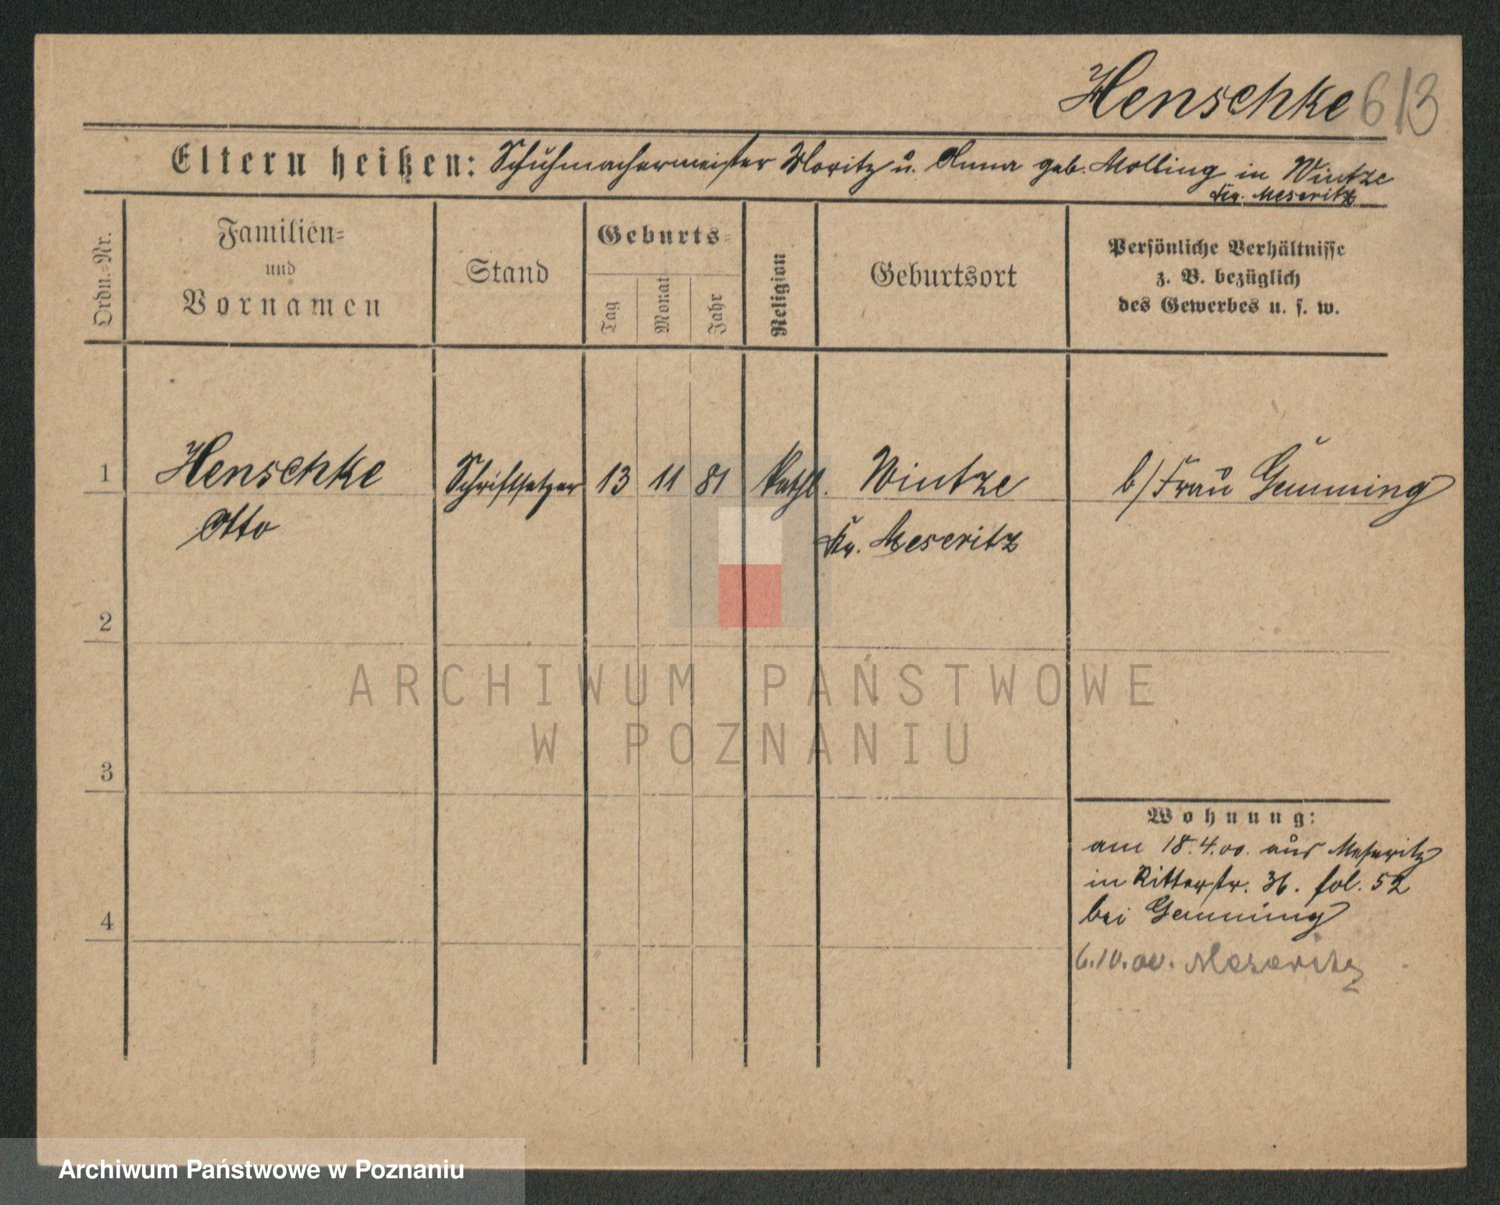 Henschke 613
Eltern heißen: Schuhmachermeister Moritz u. Anna geb. Molling in Wintze
Kr. Meseritz
Ordn.=Nr.
Familien=
und
Vornamen
Stand
Geburts=
Tag
Monat
Jahr
Religion
Geburtsort
Persönliche Verhältnisse
z. B. bezüglich
des Gewerbes u. s. w.
1 Henschke Schriftsetzer 13 11 81 kath. Wintze b/Frau Gemming
Otto Kr. Meseritz
2
3
4
Wohnung:
am 18.4.00. aus Meseritz
in Ritterstr. 36. fol. 52
bei Gemming
6.10.00. Meseritz
ARCHIWUM PAŃSTWOWE
W POZNANIU
Archiwum Państwowe w Poznaniu